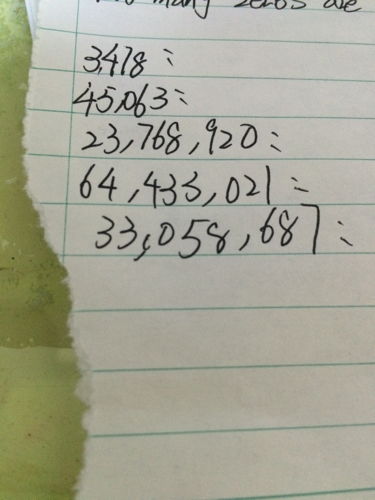 many zeros are
3,478:
45,063:
23,768,920:
64,433,021:
33,058,687: